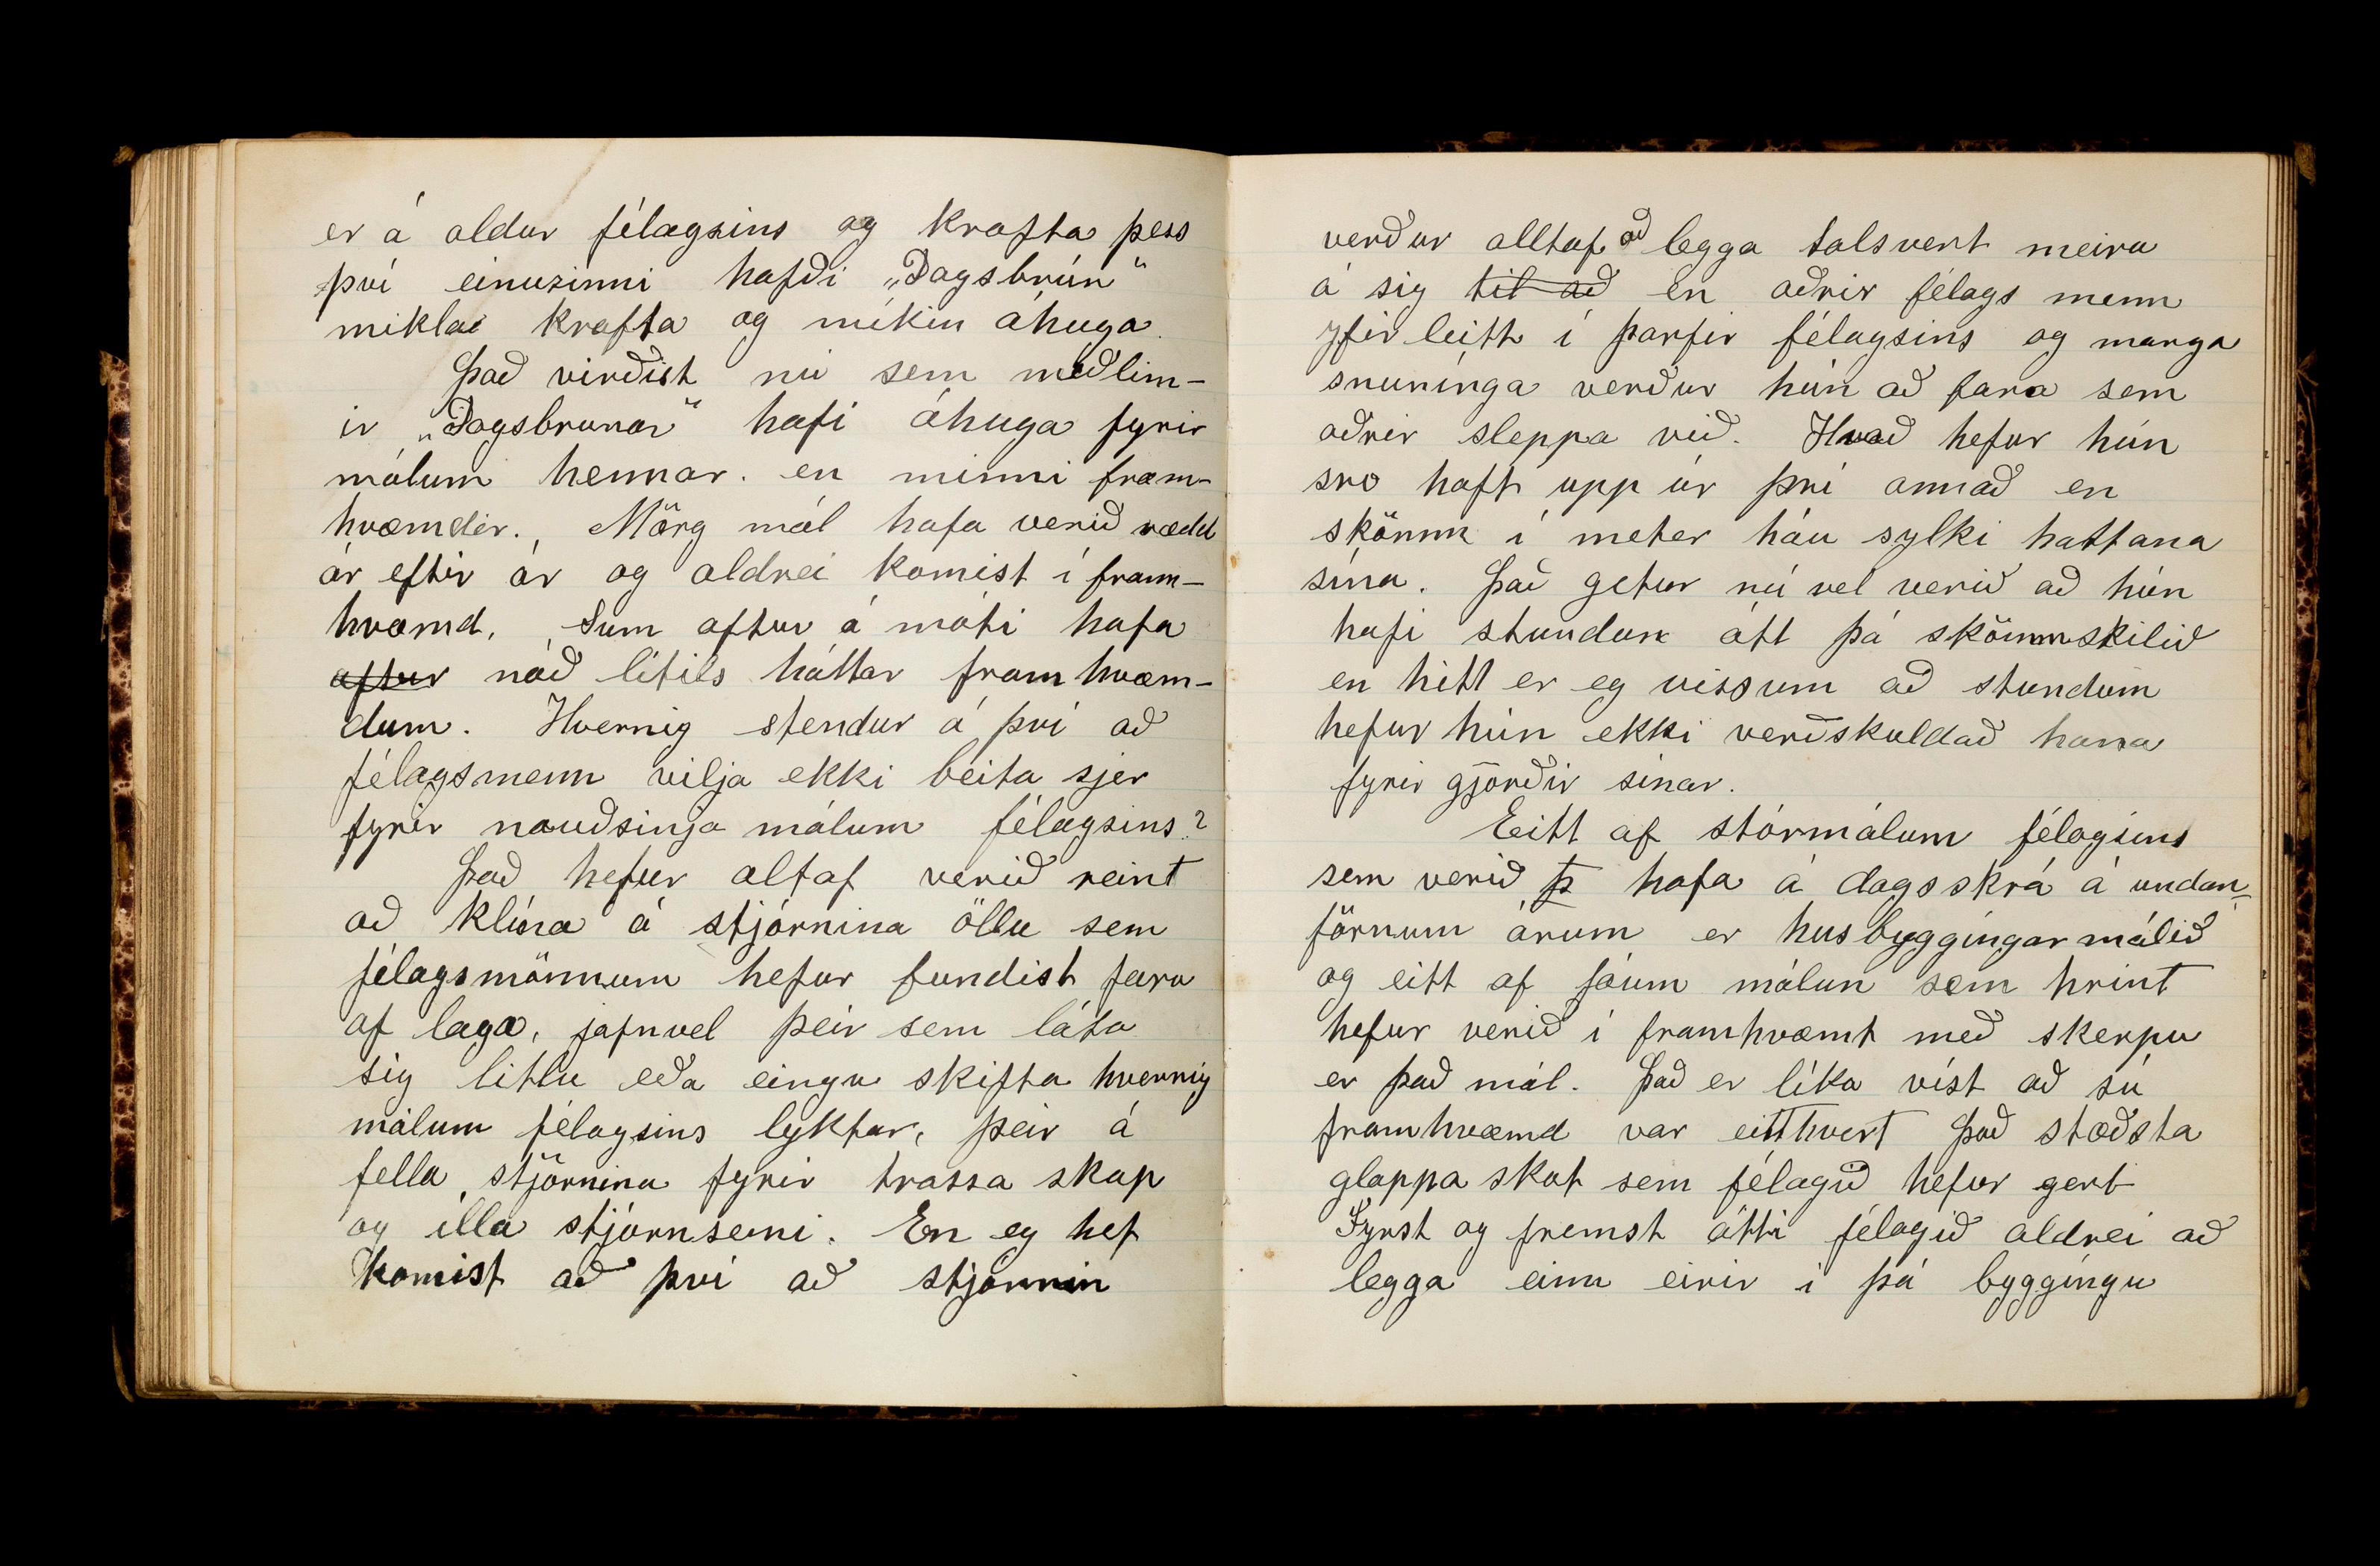 er á aldur félagsins og krafta þess
því einuzinni hafði „Dagsbrún“
miklar krafta og mikin áhuga.
Það virðist nú sem meðlim-
ir „Dagsbrunar“ hafi áhuga fyrir
málum hennar. en minni fram-
hvæmdir., Mörg mál hafa verið rædd
ár eftir ár og aldrei komist í fram-
hvæmd. Sum aftur á móti hafa
aftur náð lítils háttar fram hvæm-
dum. Hvernig stendur á því að
félagsmenn vilja ekki beita sjer
fyrir nauðsinja málum félagsins?
Það hefur altaf verið reint
að klína á stjórnina öllu sem
félagsmönnum hefur fundist fara
af laga, jafnvel þeir sem láta
sig litlu eða eingu skifta hvernig
málum félagsins lyktar, þeir á
fella stjórnina fyrir trassa skap
og illa stjórnsemi. En eg hef
komist að því að stjórnin
verður alltaf að legga talsvert meira
á sig til að en aðrir félags menn
yfir leitt í þarfir félagsins og marga
snuninga verður hún að fara sem
aðrir sleppa við. Hvað hefur hún
svo haft upp úr því annað en
skömm í meter háu sylki hattana
sína. Það getur nú vel verið að hún
hafi stundum átt þá skömm skilið
en hitt er eg viss um að stundum
hefur hún ekki verðskuldað hana
fyrir gjörðir sínar.
Eitt af stórmálum félagsins
sem verið þ hafa á dagsskrá á undan-
förnum árum er husbyggingar málið
og eitt af fáum málun sem hrint
hefur verið í framhvæmt með skerpu
er það mál. Það er líka víst að sú
framhvæmd var eitthvert það stæðsta
glappa skot sem félagið hefur gert
Fyrst og fremst átti félagið aldrei að
legga einn eirir i þá byggingu